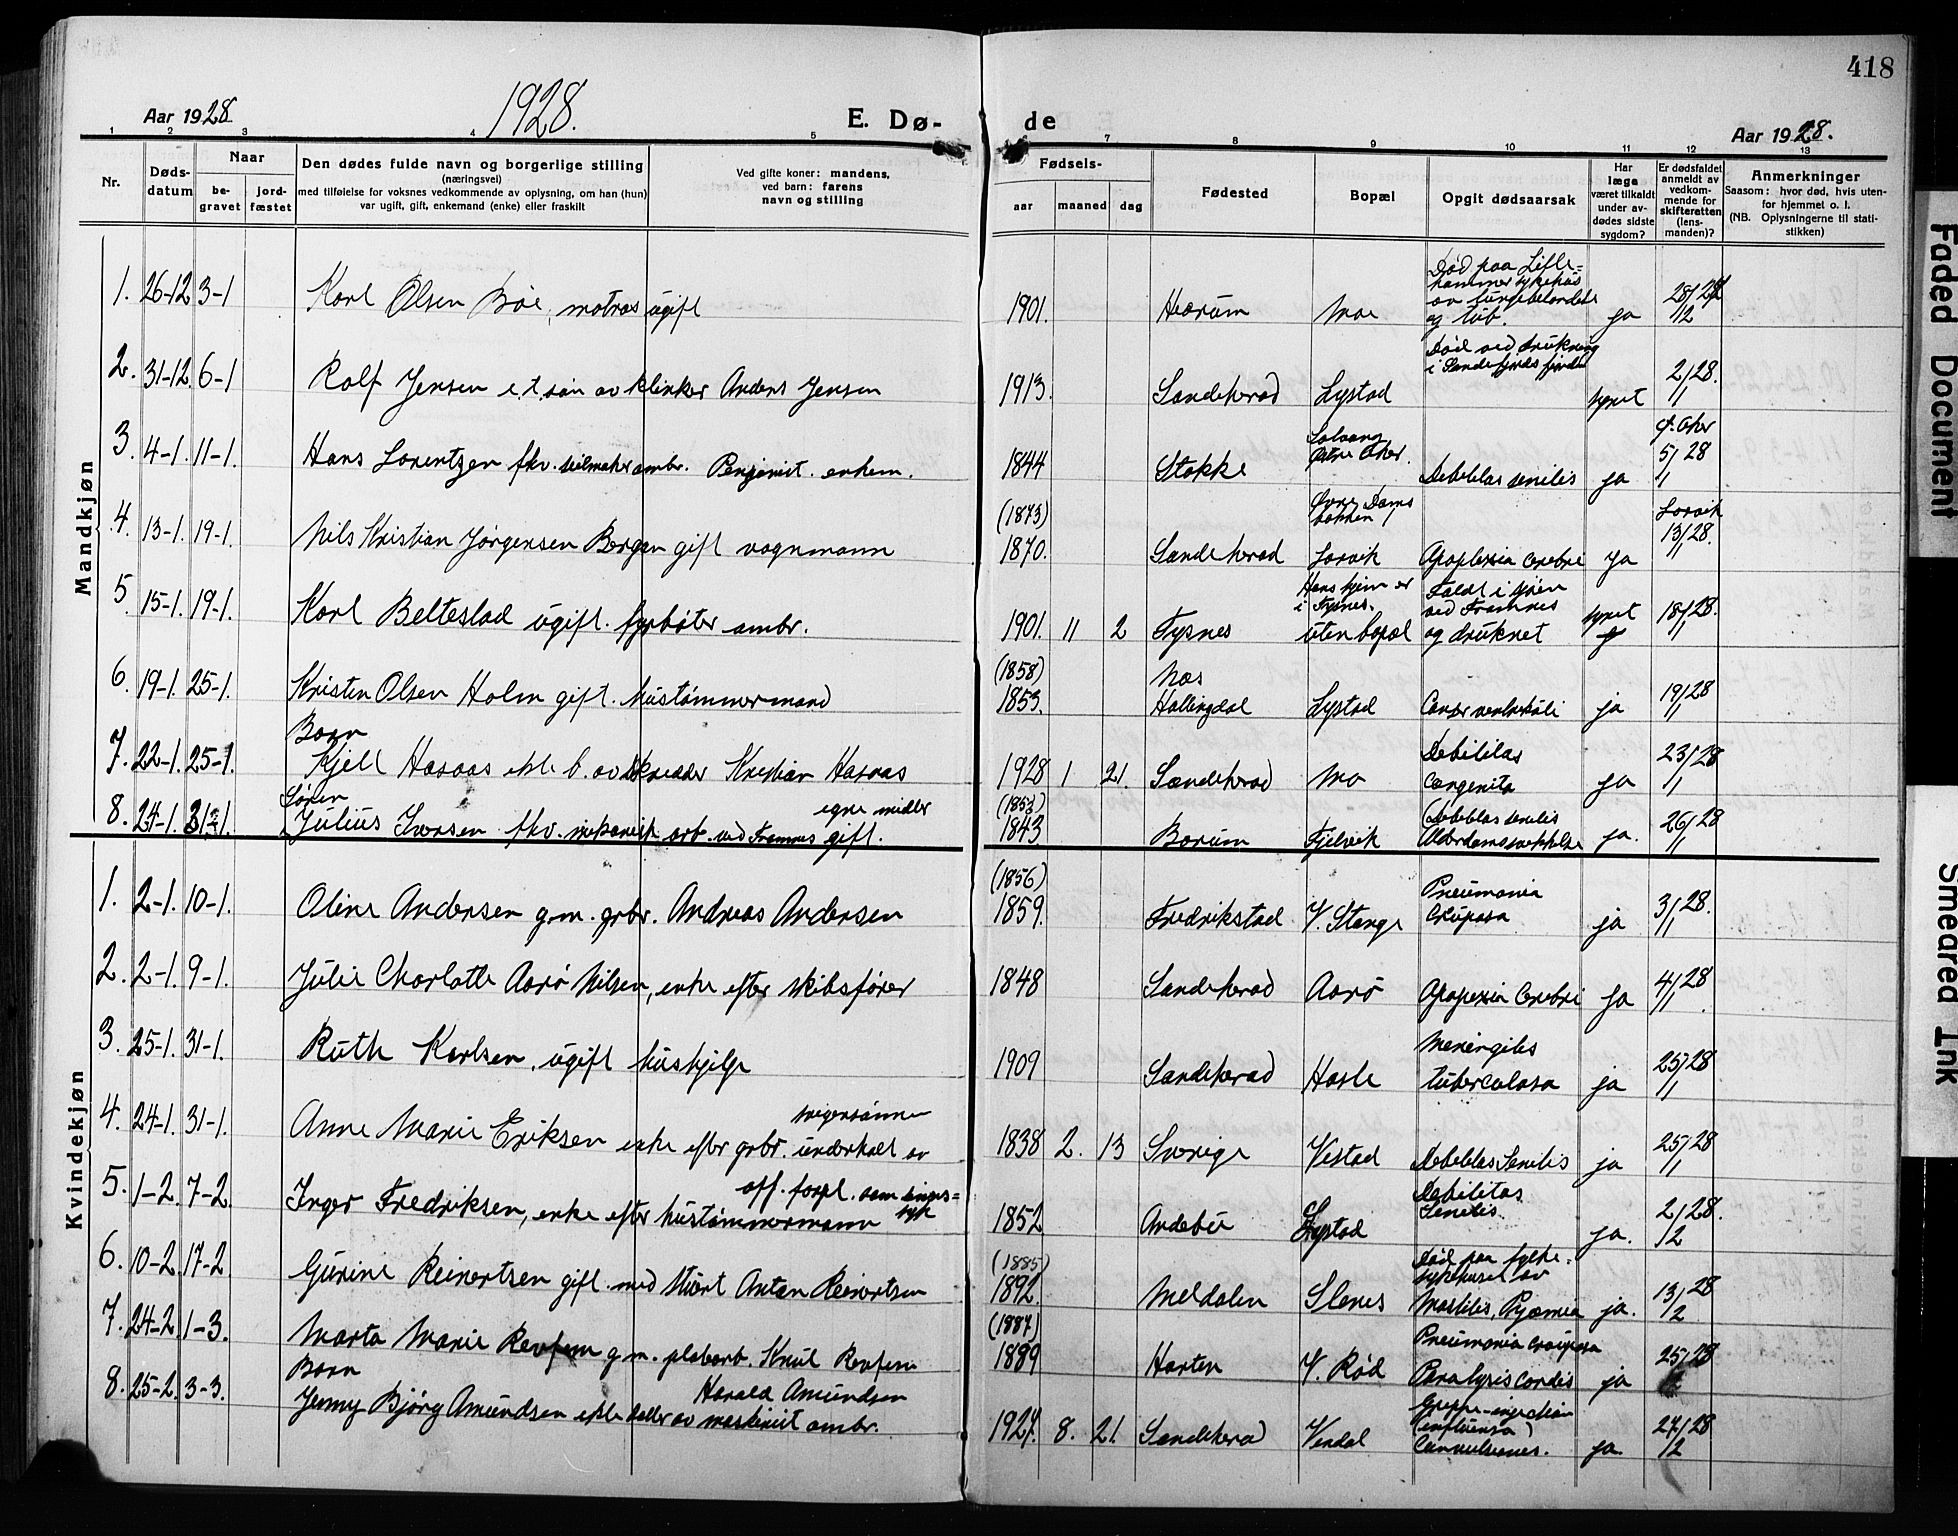 418
Aar 1928
1928.
E. Dø-
de
Aar 1928.
1 2 3 4 5 7 8 9 10 11 12 13
Nr.
Døds-
datum
Naar
be-
gravet
jord-
fæstet
Den dødes fulde navn og borgerlige stilling
(næringsvei)
med tilføielse for voksnes vedkommende av oplysning, om han (hun)
var ugift, gift, enkemand (enke) eller fraskilt
Ved gifte koner: mandens,
ved barn: farens
navn og stilling
Fødsels-
aar
maaned
dag
Fødested
Bopæl
Opgit dødsaarsak
Har
læge
været tilkaldt
under av-
dødes sidste
sygdom?
Er dødsfaldet
anmeldt av
vedkom-
mende for
skifteretten
(lens-
manden)?
Anmerkninger
Saasom: hvor død, hvis uten-
for hjemmet o. l.
(NB. Oplysningerne til stati-
stikken)
Mandkjøn
1. 26-12 3-1 Karl Olsen Bøe, matros ugift 1901. Hærum Mo Død paa Lille-
hammer sykehus
av lungebetændelse
og tub. ja 28/12 27
2. 31-12 6-1 Rolf Jensen e.t. søn av klinker Anders Jensen 1913. Sandeherad Lystad Død ved drukning
i Sandefjords fjorden synet 2/1 28.
3. 4-1. 11-1. Hans Lorentzen fhv. seilmaker ambr. Pensjonist. enkem. 1844 Stokke Solvang
Østre Aker. Debilitas senilis ja Ø. Aker
5/1 28
4. 13-1. 19-1. Nils Kristian Jørgensen Bergan gift vognmann (1873)
1870. Sandeherad Øvre Dams
bakken
Larvik Apoplexia cerebri ja Larvik
13/1 28.
5. 15-1. 19-1. Karl Beltestad ugift. fyrbøter ambr. 1901. 11 2 Tysnes Hans hjem er
i Tysnes.
uten bopæl Faldt i sjøen
ved Framnes
og druknet synet 18/1 28.
6. 19-1. 25-1. Kristen Olsen Holm gift. hustømmermand (1858)
1853. Næs
Hallingdal Lystad Cancer ventriculi ja 19/1 28
7. 22-1. 25-1. Barn
Kjell Hasaas ekte b. av skredder Kristian Hasaas 1928 1 21. Sandeherad Mo Debilitas
congenita ja 23/1 28
8. 24-1. 31-1. Søren
Julius Iversen fhv. mekanisk arb. ved Framnes gift. egne midler (1853)
1843. Bærum Fjelvik Debilitas senilis
Alderdomssvekkelse ja. 26/1 28
Kvindekjøn
1. 2-1. 10-1. Oline Andersen g.m. grbr. Andreas Andersen (1856)
1859. Fredrikstad V. Stange Pneumonia
crouposa ja 3/1 28.
2. 2-1. 9-1. Julie Charlotte Aarø Nilsen, enke efter skibsfører 1848 Sandeherad Aarø Apoplexia cerebri ja 4/1 28.
3. 25-1. 31-1. Ruth Karlsen, ugift hushjelp 1909 Sandeherad Hasle Meningitis
tuberculosa ja 25/1 28
4. 24-1. 31-1. Anne Marie Eriksen enke efter grbr. underholdt av svigersønnen 1838 2. 13 Sverige Vestad Debilitas senilis ja 25/1 28
5. 1-2. 7-2. Inger Fredriksen, enke efter hustømmermann off. forpl. som sinds-
syk 1852 Andebu Lystad Debilitas
senilis. ja. 2/2 28.
6. 10-2. 17-2 Gurine Reinertsen gift. med stuert Anton Reinertsen (1885)
1892. Meldalen Slenes Død paa fylke-
sykehuset av
Mastitis, Pyæmia ja. 13/2 28
7. 24-2. 1-3. Marta Marie Revfem g.m. pladearb. Knut Revfem (1887)
1889 Horten V. Rød Pneumonia crouposa
Paralysis cordis ja 25/2 28
8. 25-2. 3-3. Barn
Jenny Bjørg Amundsen ekte datter av maskinist ambr. Harald Amundsen 1927. 8. 21. Sandeherad Vindal Grippe-injection
(influensa)
Convulsiones. ja. 27/2 28
Faded Document
Smeared Ink